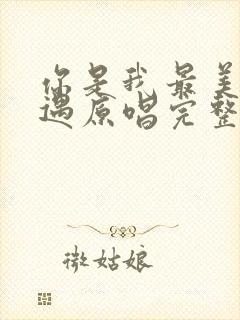 你是我最美
遇原唱完整
微姑娘